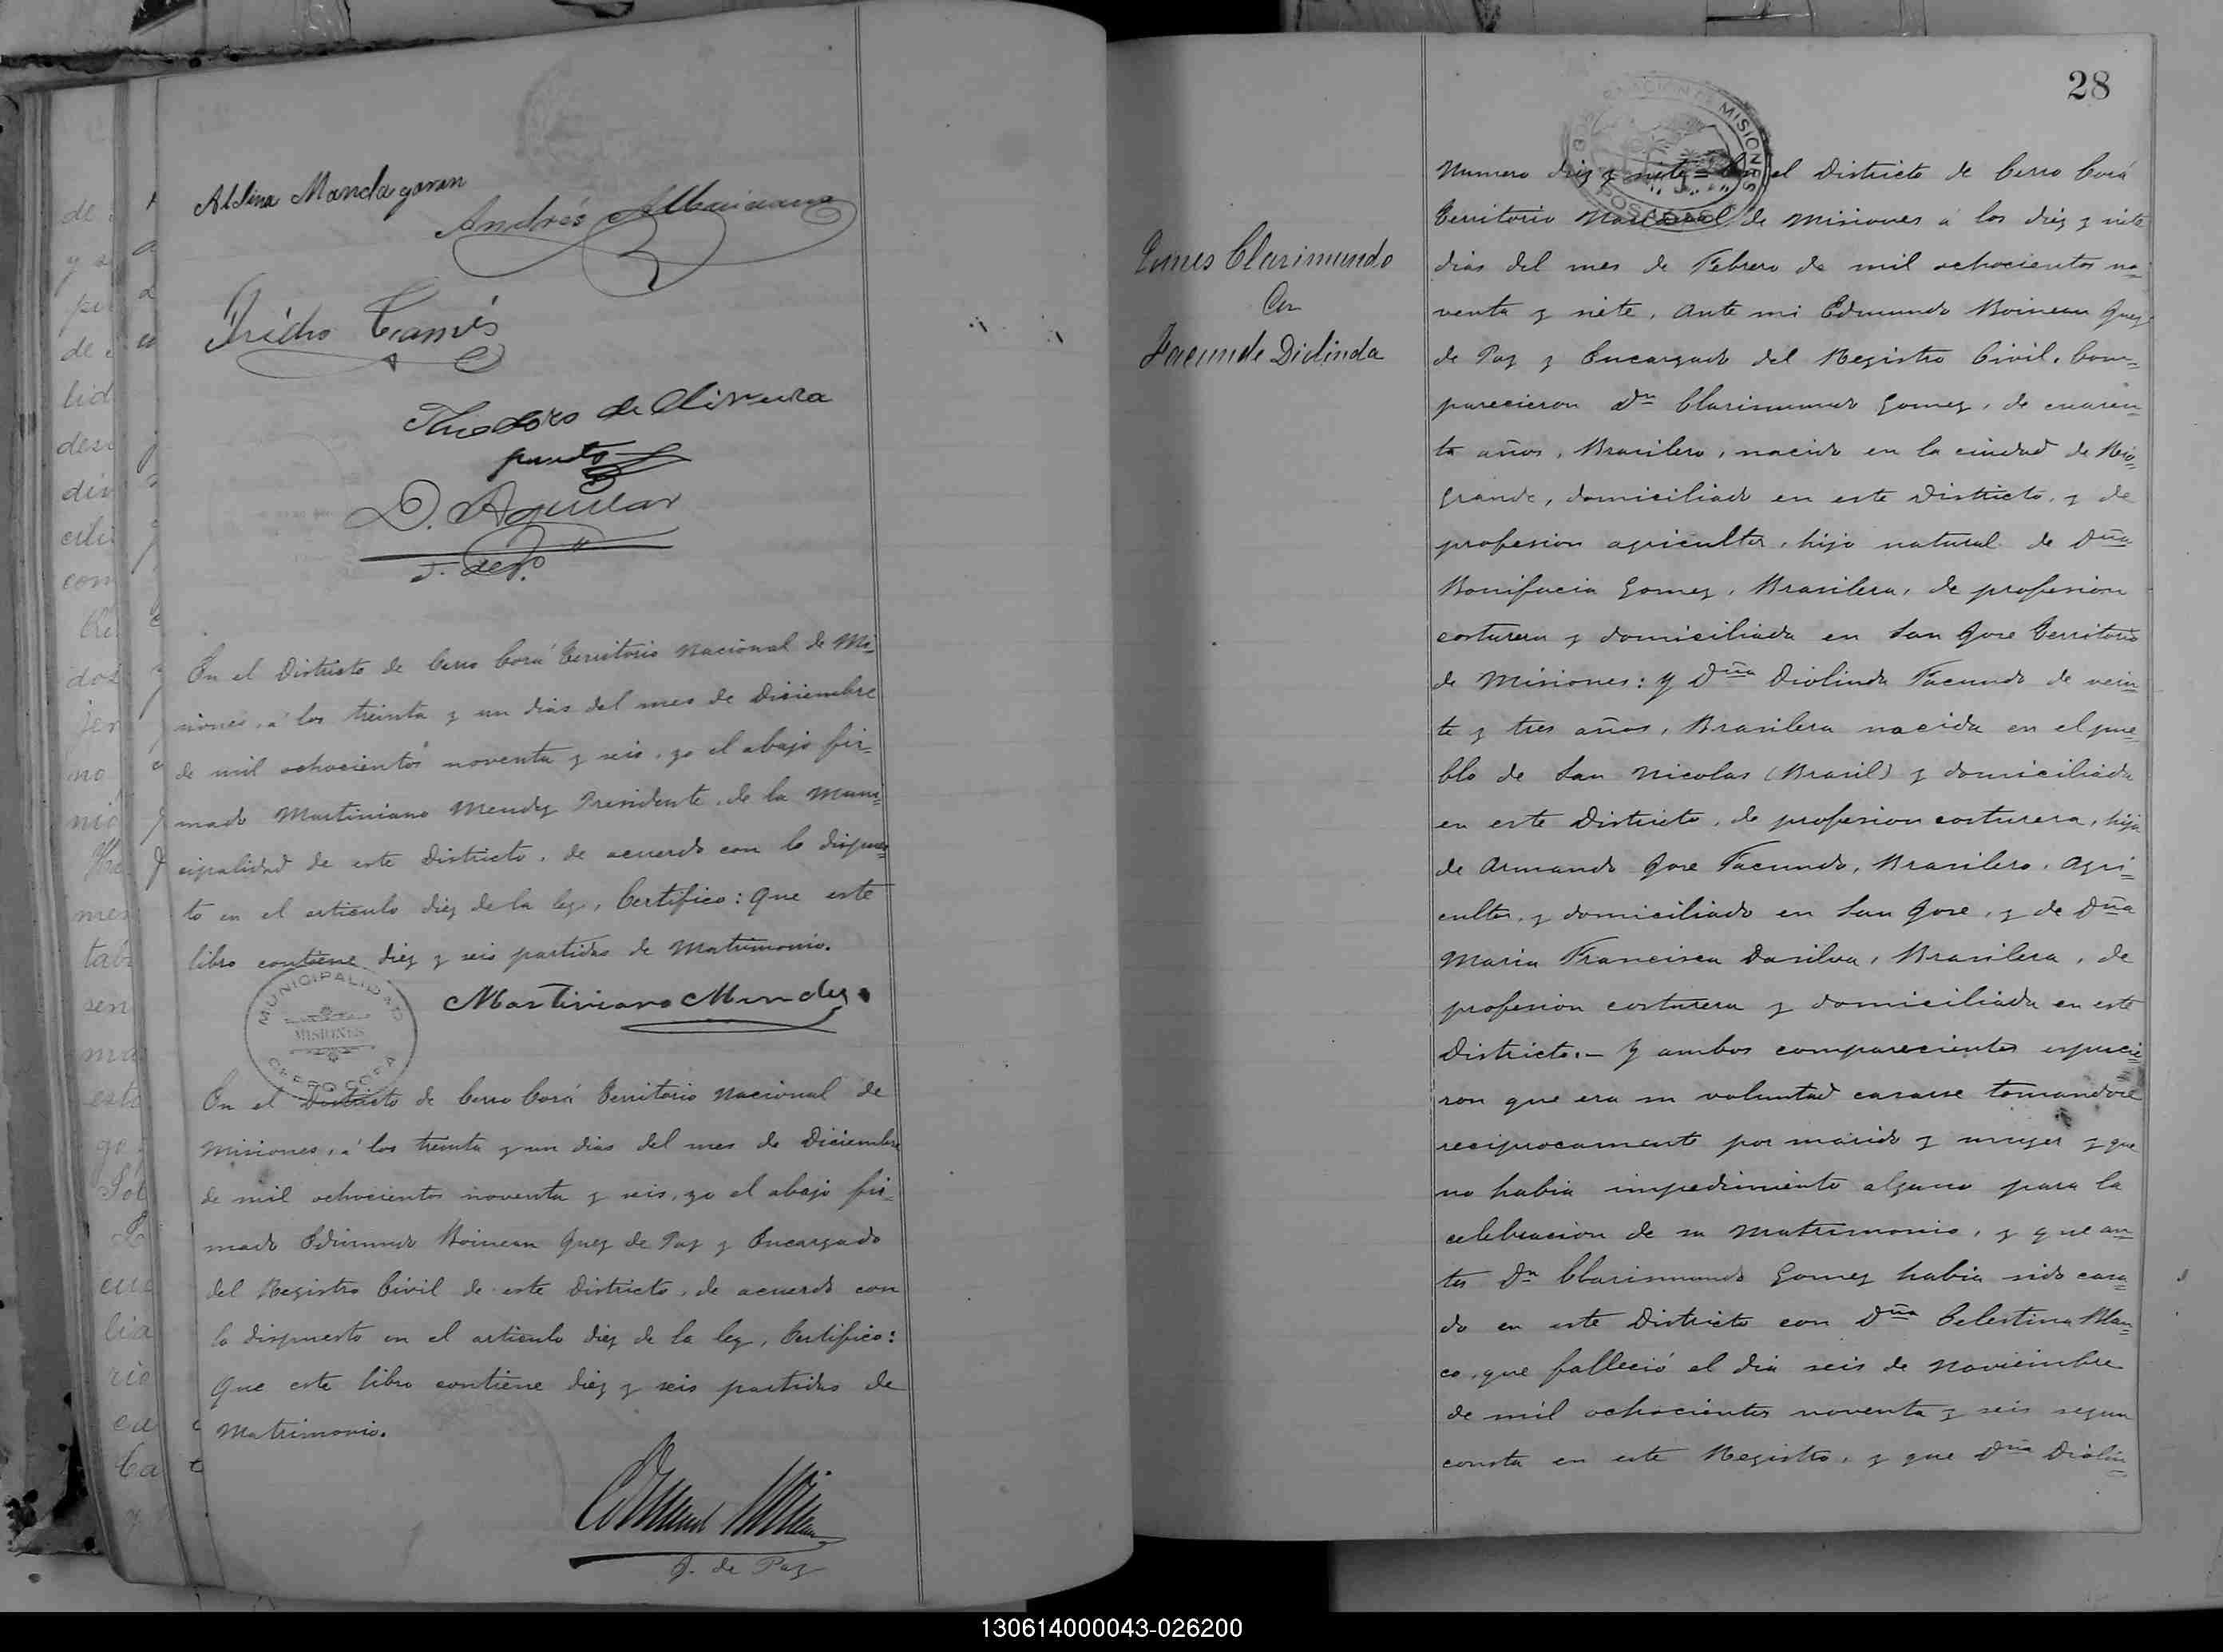 Aldina Mandagaran
Andrés
Theodoro de Olivera
D. Aguilar
J. de P.
En el Districto de Cerro Corá Territorio Nacional de Mi=
siones, á los treinta y un dias del mes de Diciembre
de mil ochocientos noventa y seis, yo el abajo fir=
mado Martiniano Mendez Presidente de la Muni=
cipalidad de este Districto, de acuerdo con lo dispues=
to en el articulo diez de la ley, Certifico: Que este
libro contiene diez y seis partidas de Matrimonio.
Martiniano Mendez
MUNICIPALIDAD
MISIONES
CERRO CORA
En el Districto de Cerro Corá Territorio Nacional de
Misiones, á los treinta y un dias del mes de Diciembre
de mil ochocientos noventa y seis, yo el abajo fir=
mado Edmundo Boineau Juez de Paz y Encargado
del Registro Civil de este Districto, de acuerdo con
lo dispuesto en el articulo diez de la ley, Certifico:
Que este libro contiene diez y seis partidas de
Matrimonio.
J. de Paz
28
Gomes Clarimundo
Con
Facunde Diolinda
Numero diez y siete = En el Districto de Cerro Corá
Territorio Nacional de Misiones á los diez y siete
dias del mes de Febrero de mil ochocientos no=
venta y siete, Ante mi Edmundo Boineau Juez
de Paz y Encargado del Registro Civil, Com=
parecieron Dn Clarimundo Gomez, de cuaren=
ta años, Brasilero, nacido en la ciudad de Rio=
grande, domiciliado en este Districto, y de
profesion agricultor, hijo natural de Dña
Bonifacia Gomez, Brasilera, de profesion
costurera y domiciliada en San Jose Territorio
de Misiones: y Dña Diolinda Facundo de vein=
te y tres años, Brasilera nacida en el pue=
blo de San Nicolas (Brasil) y domiciliada
en este Districto, de profesion costurera, hija
de Armando Jose Facundo, Brasilero, Agri=
cultor, y domiciliado en San Jose, y de Dña
Maria Francisca Dasilva, Brasilera, de
profesion costurera y domiciliada en este
Districto.- Y ambos comparecientes espucie=
ron que era su voluntad casarse tomandose
reciprocamente por marido y muger y que
no habia impedimiento alguno para la
celebracion de su Matrimonio, y que an=
tes Dn Clarimundo Gomez habia sido casa=
do en este Districto con Dña Celestina Blan=
co, que falleció el dia seis de Noviembre
de mil ochocientos noventa y seis segun
consta en este Registro, y que Dña Diolin=
130614000043-026200